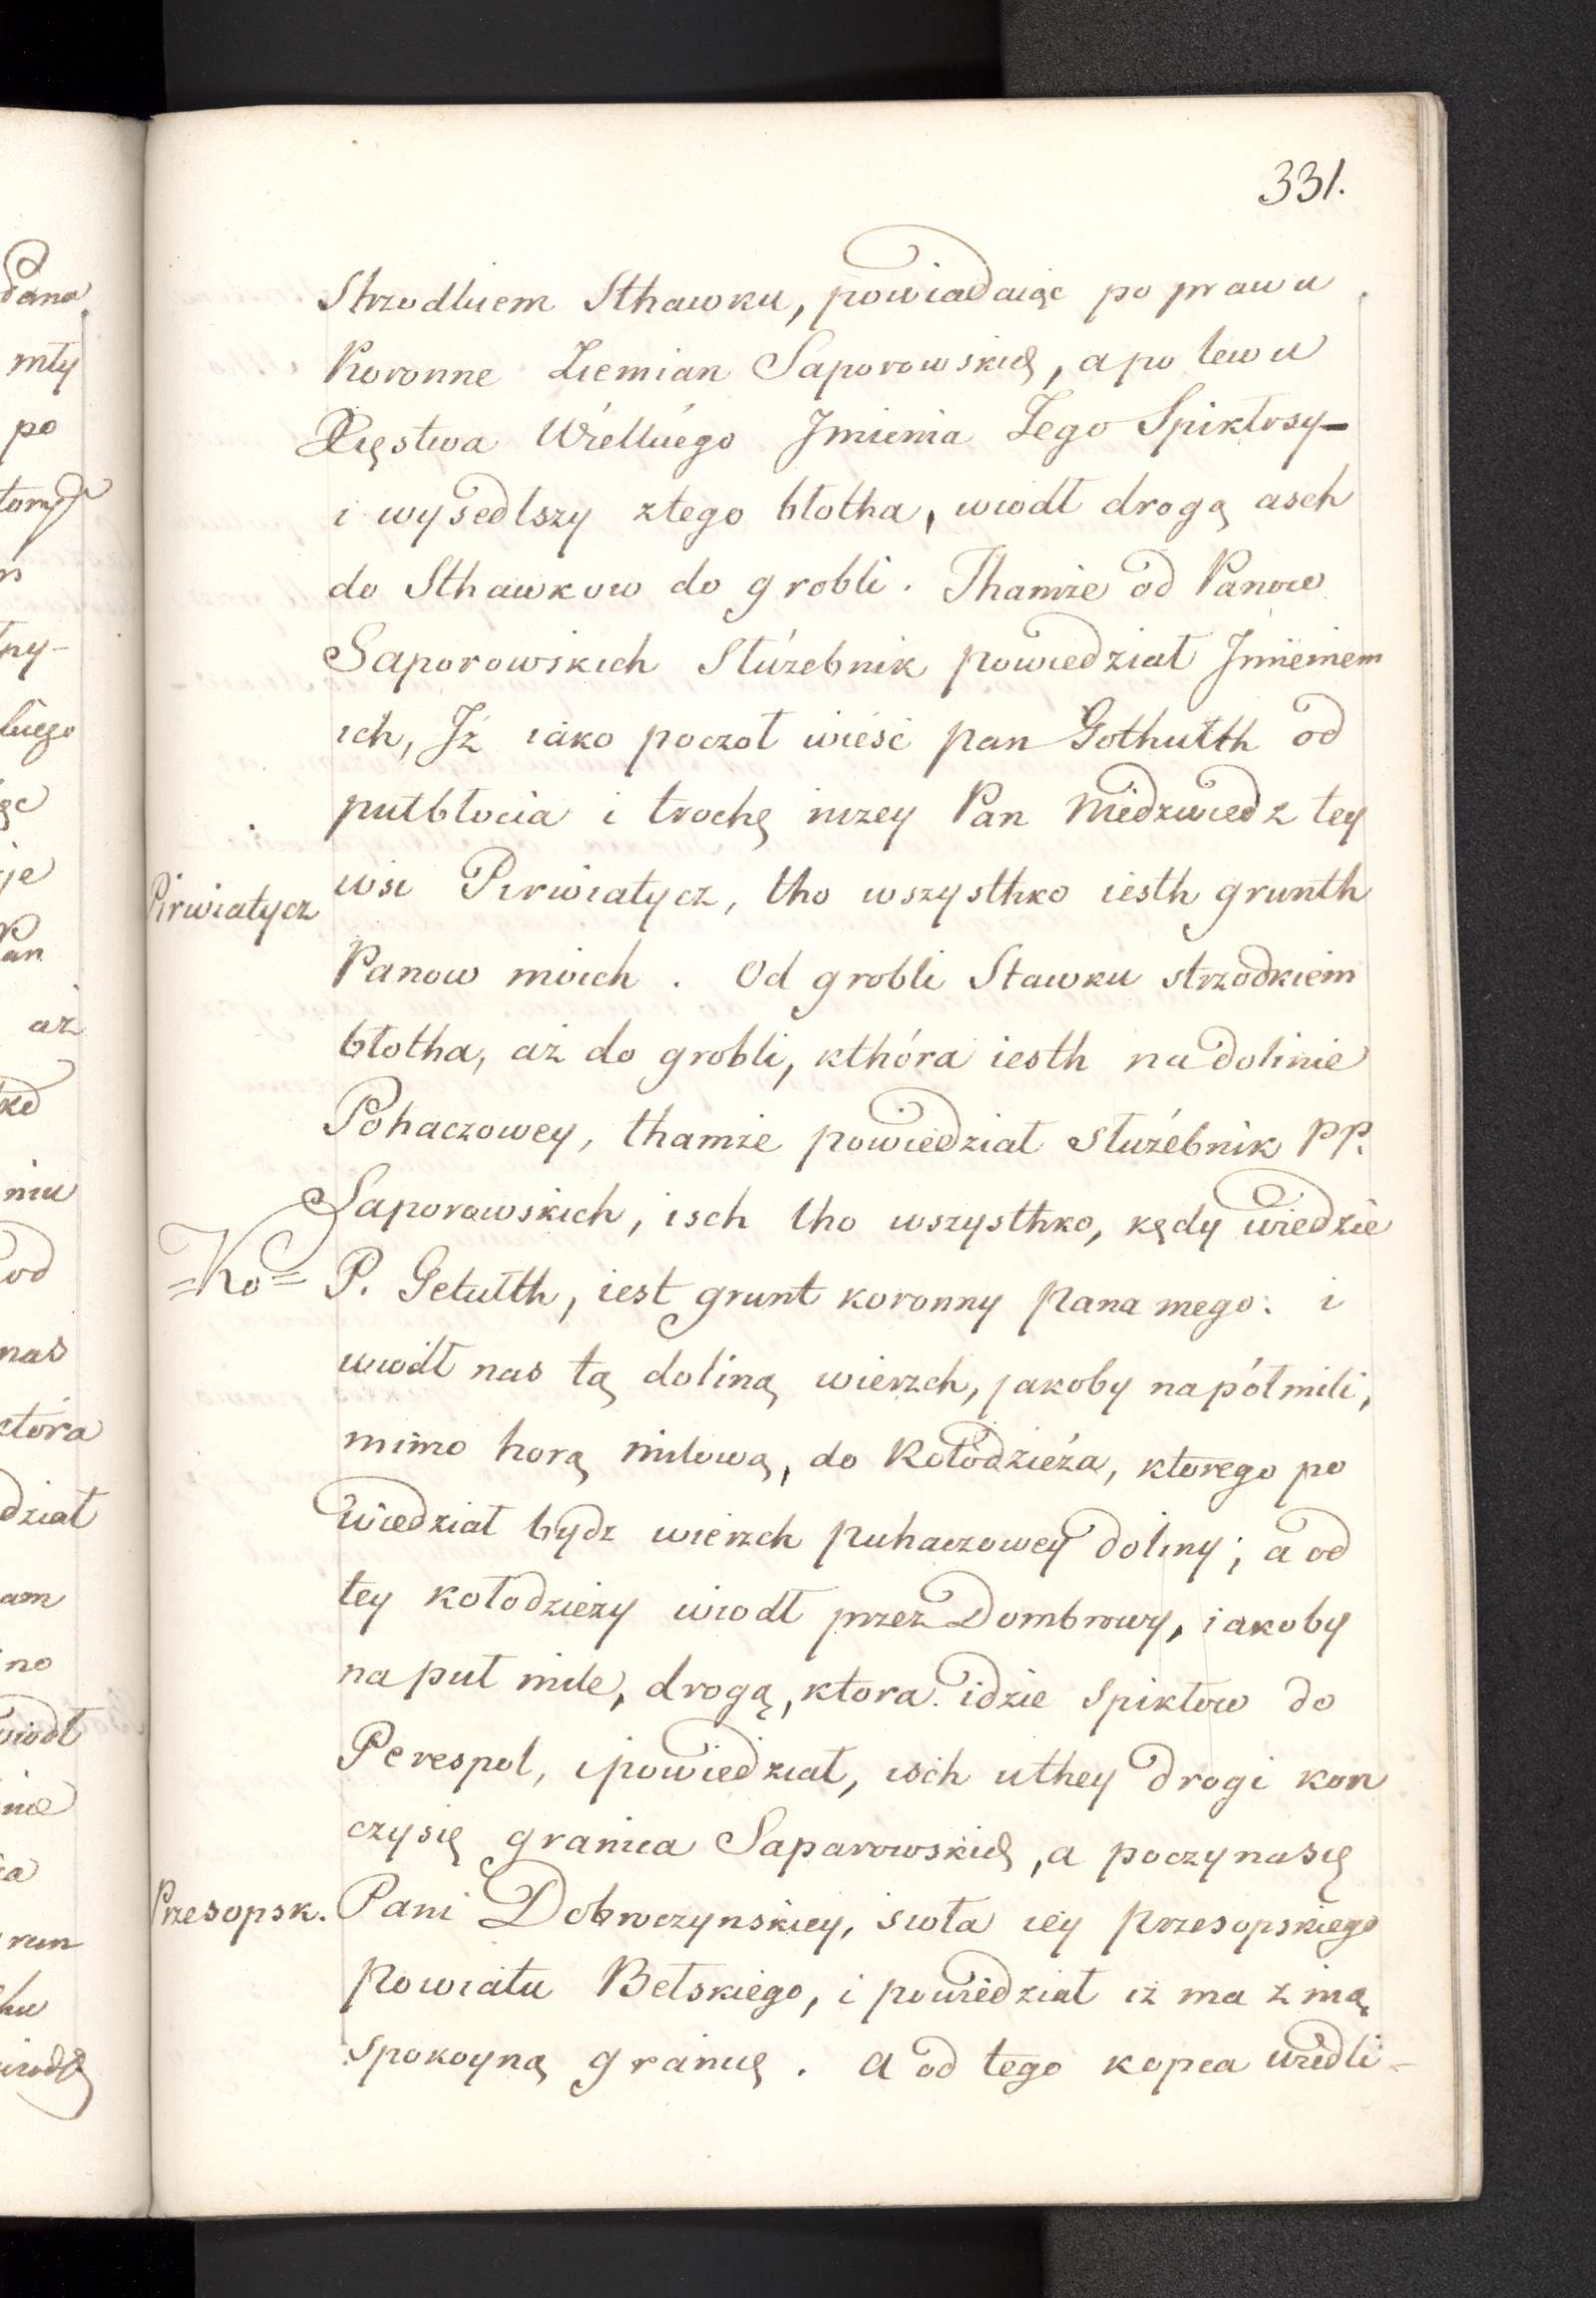 331.
Strzodkiem Sthawku, powiadaiąc po prawu
Koronne Ziemian Saporowskich, a po lewu
Xięstwa Wiellkiego Jmienia Lego Spiktosy-
i wysedlszy ztego błotha, wiodł drogą asch
do Sthawkow do grobli. Thamże od Panow
Saporowskich Służebnik powiedział Jmieniem
ich, Jż iako poczoł wieść pan Gothułth od
putbłocia i trochę nizey Pan Niedzwiedz tey
Pirwiatycz
wsi Pirwiatycz, tho wszysthko iesth grunth
Panow moich. Od grobli Stawku strzodkiem
błotha, aż do grobli, kthóra iesth na dolinie
Pohaczowey, thamże powiedział służebnik PP.
Saporowskich, isch tho wszysthko, kędy wiedzie
=Ko=
P. Getułth, iest grunt koronny pana mego: i
wiodł nas tą doliną wierzch, jakoby na pół mili,
mimo horą milową, do Kołodzieża, ktorego po
wiedział bydz wierzch puhaczowey doliny; a od
tey kołodzieży wiodł przez Dombrowy, iakoby
na puł mile, drogą, ktora idzie spiktow do
Perespol, i powiedział, isch uthey drogi kon
czysię granica Saparowskich, a poczynasię
Przesopsk.
Pani Dobroczynskiey, sioła iey przesopskiego
powiatu Bełskiego, i powiedział iż ma z nią
spokoyną granicę. A od tego kopca wiedli-
dana
mły
po
ny-
ku
aż
niu
od
nas
która
dział
am
no
wiodł
nie
run